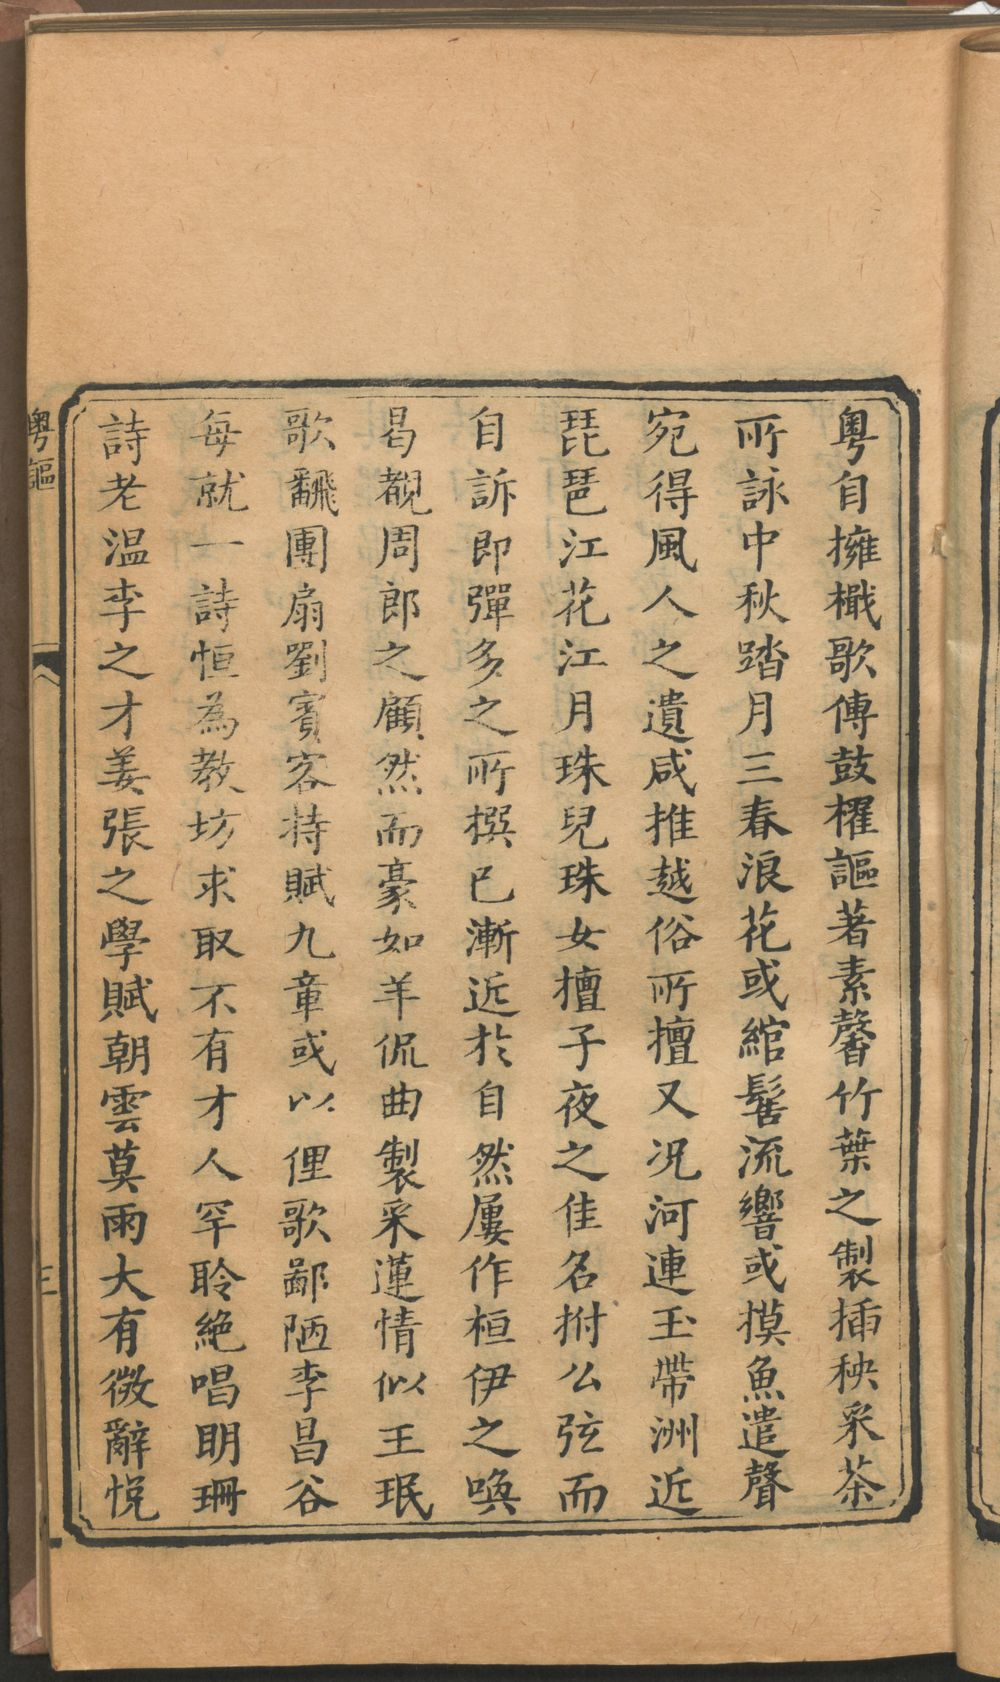 粵自擁檝歌傳鼓櫂謳著素馨竹葉之製插秧采茶
所詠中秋踏月三春浪花或綰髻流響或摸魚遣聲
宛得風人之遺咸推越俗所擅又況河連玉帶洲近
琵琶江花江月珠兒珠女擅子夜之佳名拊公弦而
自訴即彈多之所撰已漸近於自然屢作桓伊之喚
曷覩周郎之顧然而豪如羊侃曲製采蓮情似王珉
歌飜團扇劉賓客特賦九章或以俚歌鄙陋李昌谷
每就一詩恒為教坊求取不有才人罕聆絶唱明珊
詩老溫李之才姜張之學賦朝雲莫雨大有微辭悅
粵謳
三